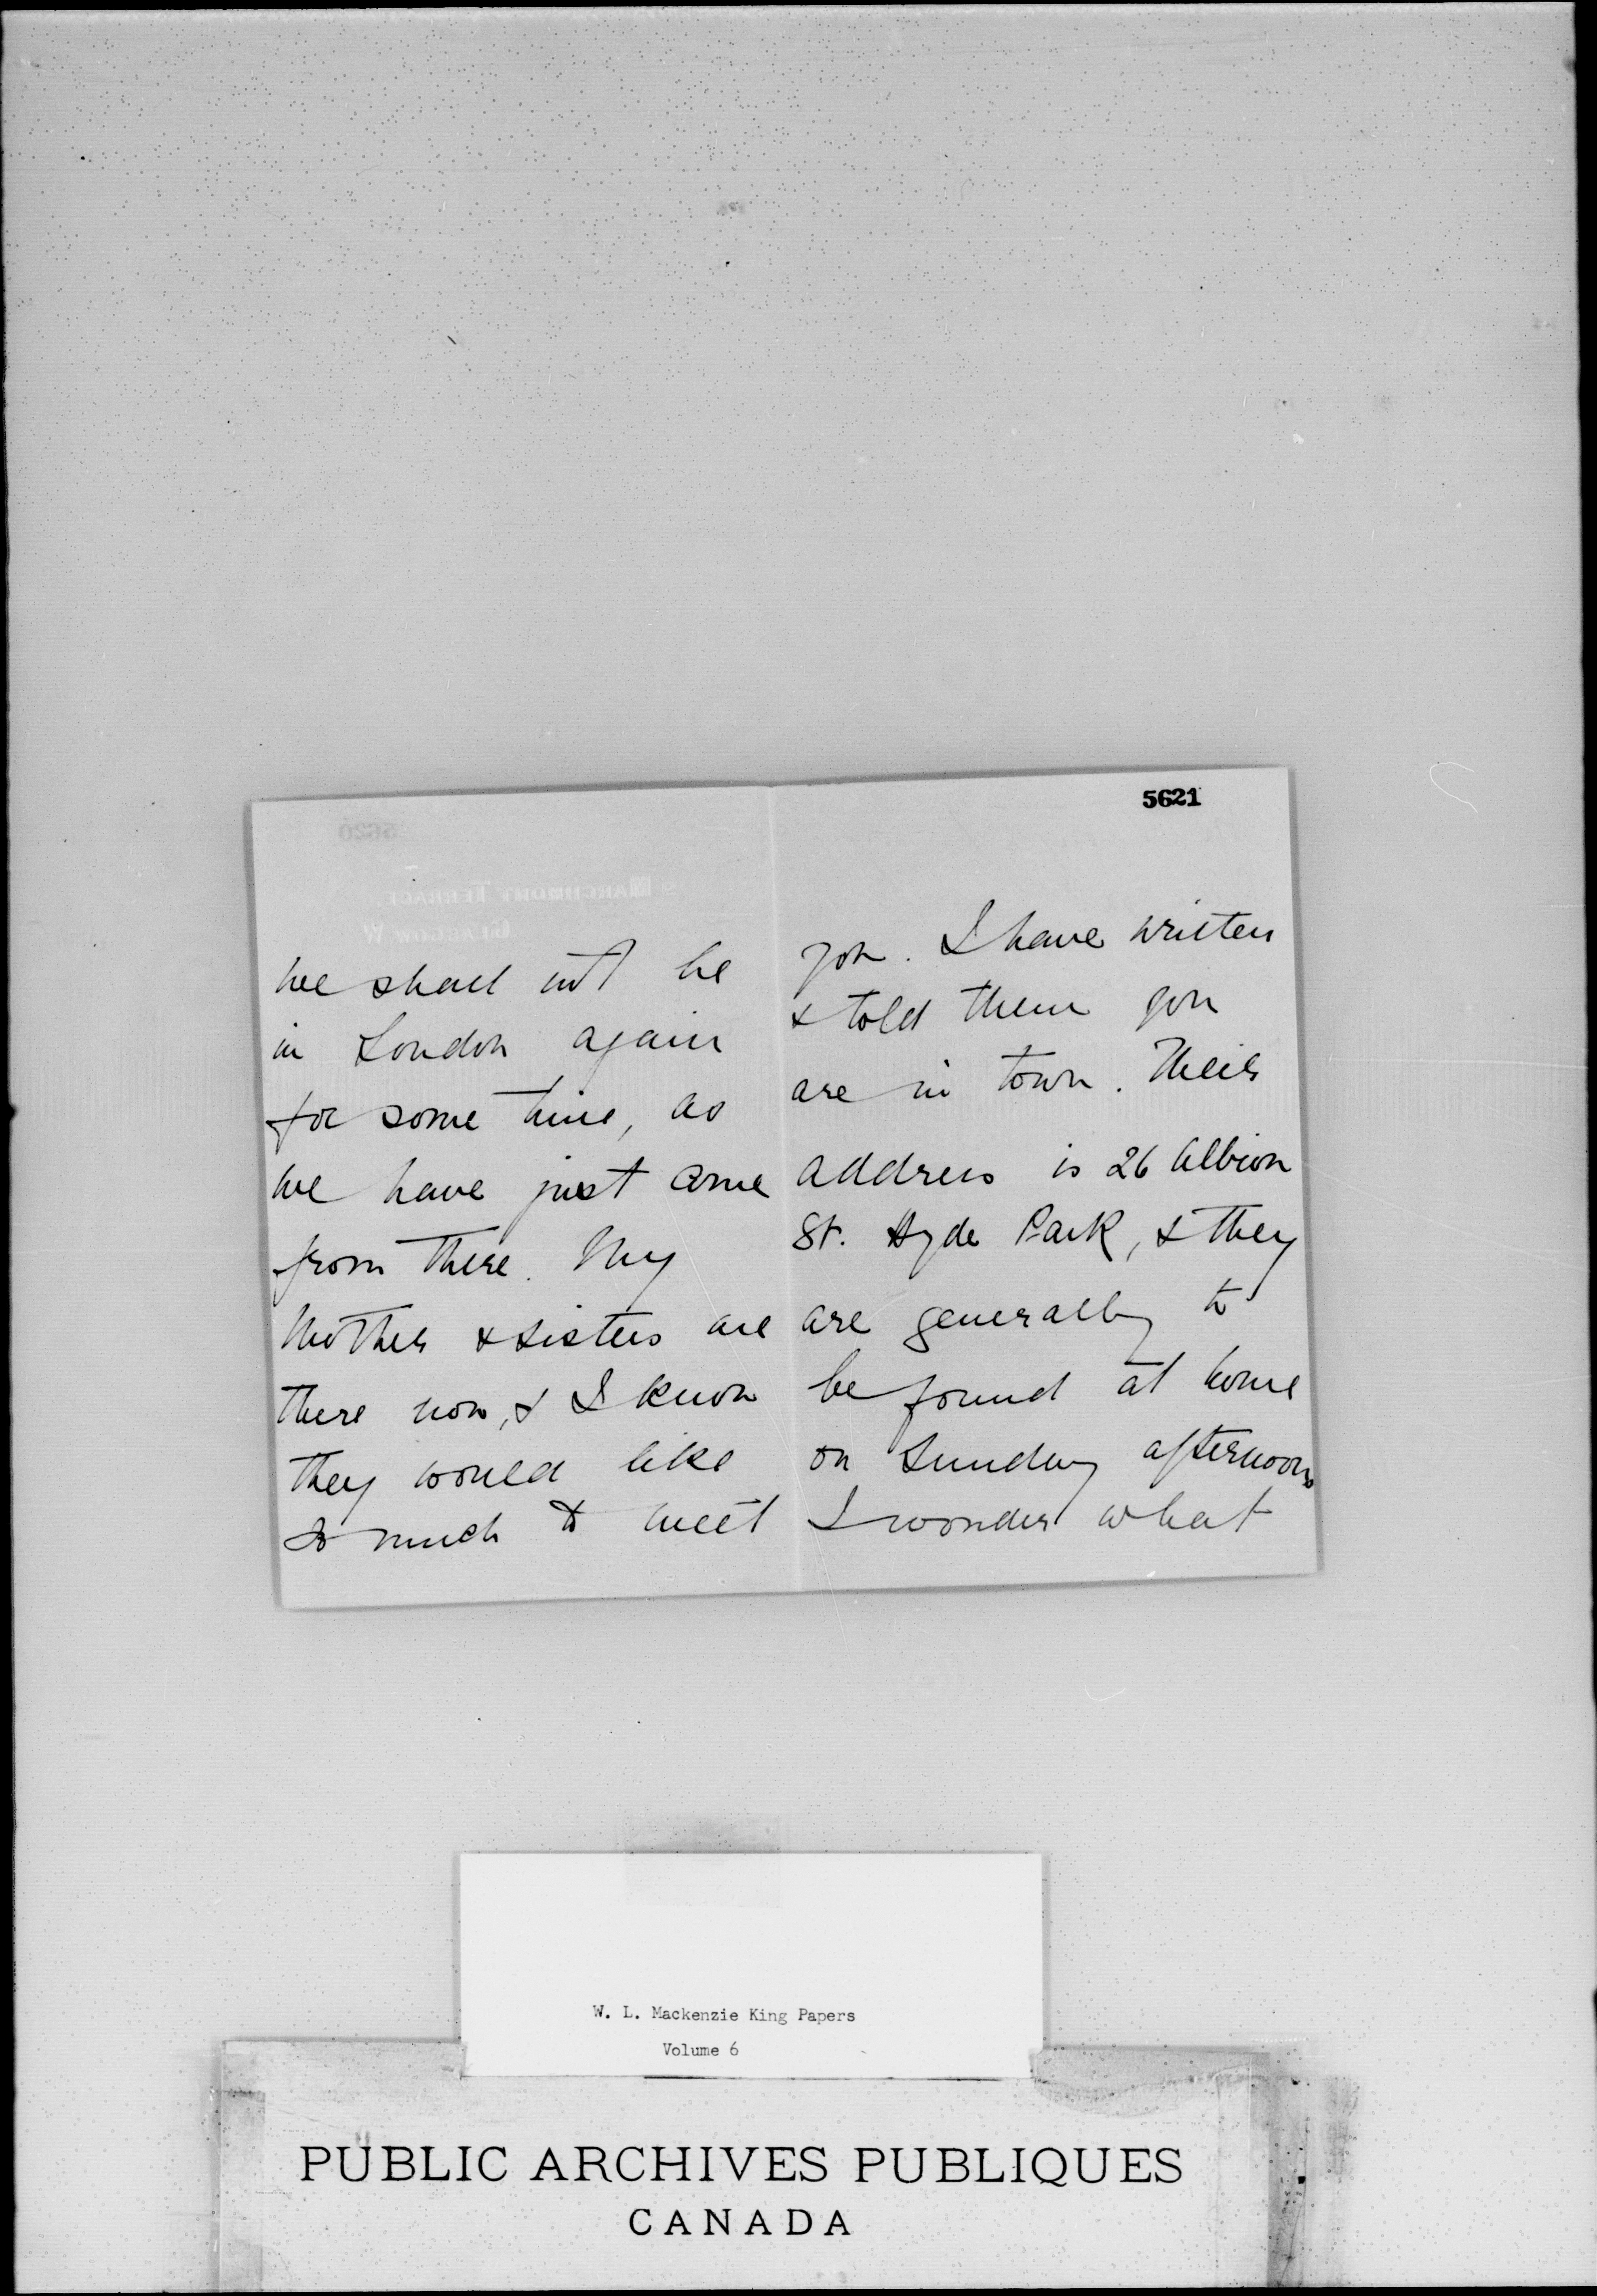 5621
we shall not be
in London again
for some time, as
we have just come
from there. My
Mother & sisters are
there now, & I know
they would like
so much to meet
you. I have written
& told them you
are in town. Their
address is 26 Albion
St. Hyde Park, & they
are generally to
be found at home
on Sunday afternoons
I wonder what
W. L. Mackenzie King Papers
Volume 6
PUBLIC ARCHIVES PUBLIQUES
CANADA